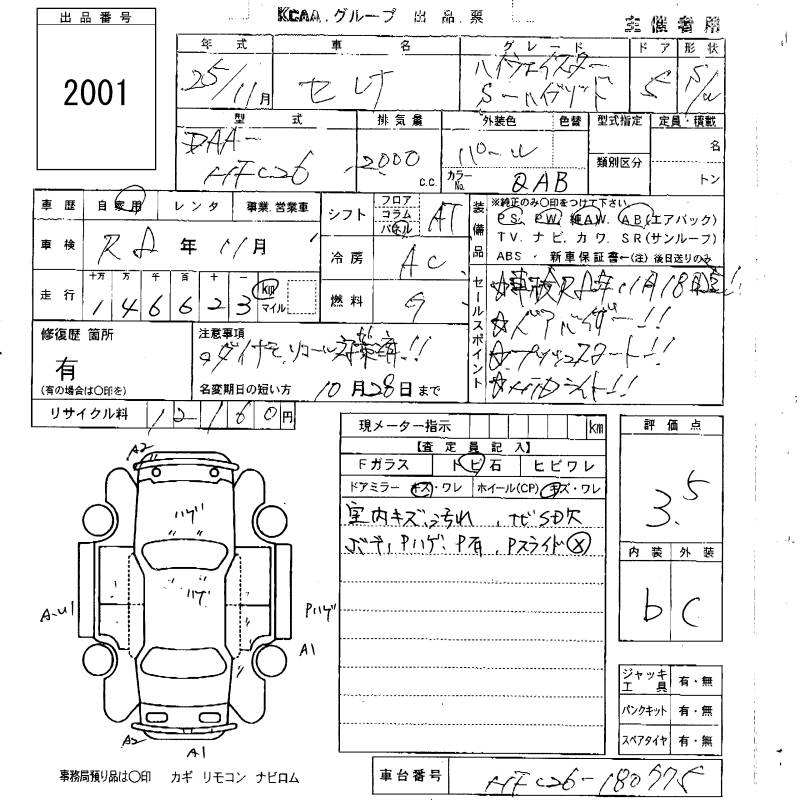 KCAA.グループ 出品票
主催者用
出品番号
2001
年式 車名 グレード ドア 形状
25/11月 セレナ ハイウェイスター S-ハイブリッド 5 S/W
型式 排気量 外装色 色替 型式指定 定員・積載
DAA-
HFC26 2000 C.C. パール 名
カラーNo. QAB 類別区分 トン
車歴 自家用 レンタ 事業.営業車
車検 R2年11月
走行 十万 万 千 百 十 一 km マイル
146623
シフト フロア コラム パネル AT
冷房 AC
燃料 G
装備品
※純正のみ○印をつけて下さい
PS. PW. 純AW. AB(エアバック)
TV. ナビ. カワ. SR(サンルーフ)
ABS ・ 新車保証書←(注)後日送りのみ
セールスポイント
☆車検R2年11月18日迄!!
☆ドアバイザー!!
☆プッシュスタート!!
☆HIDライト!!
修復歴 箇所
有
(有の場合は○印を)
注意事項
リコール 済!!
名変期日の短い方 10月28日まで
リサイクル料 12,160円
現メーター指示 km
【査定員記入】
Fガラス トビ石 ヒビワレ
ドアミラー キズ・ワレ ホイール(CP) キズ・ワレ
室内キズ、汚れ、ナビSD欠
Pハゲ、P有、Pスライド ×
評価点
3.5
内装 外装
b C
ジャッキ工具 有・無
パンクキット 有・無
スペアタイヤ 有・無
A2
ハゲ
ハゲ
A-U1
Pハゲ
A1
A2
A1
事務局預り品は○印 カギ リモコン ナビロム
車台番号 HFC26-180575